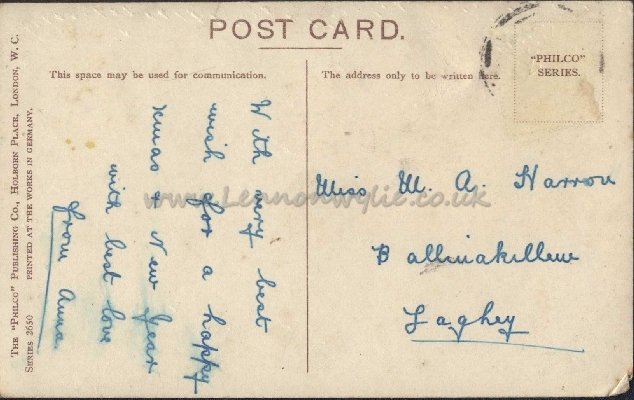 POST CARD.
This space may be used for communication.
The address only to be written here.
"PHILCO"
SERIES.
With very best
wish for a happy
xmas & New Year
with best love
from Anna
Miss M. A. Harron
Ballinakillew
Laghey
THE "PHILCO" PUBLISHING CO., HOLBORN PLACE, LONDON, W. C.
SERIES 2650 PRINTED AT THE WORKS IN GERMANY.
www.Lennonwylie.co.uk